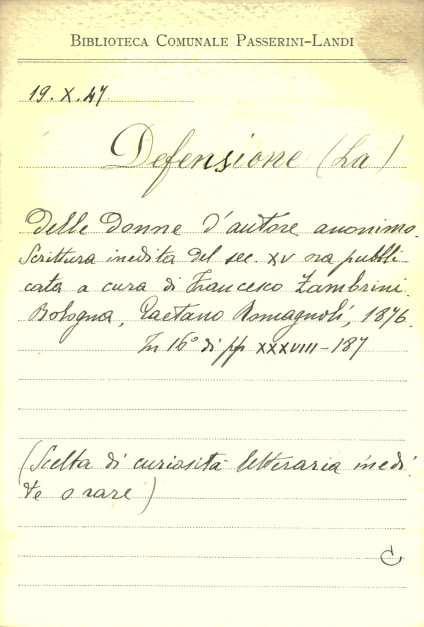 BIBLIOTECA COMUNALE PASSERINI-LANDI
19.X.47.
Defensione (La)
delle donne d'autore anonimo.
Scrittura inedita del sec. XV ora pubbli-
cata a cura di Francesco Zambrini.
Bologna, Gaetano Romagnoli, 1876.
In 16° di pp XXXVIII-187
(Scelta di curiosità letteraria inedi-
te o rare)
C